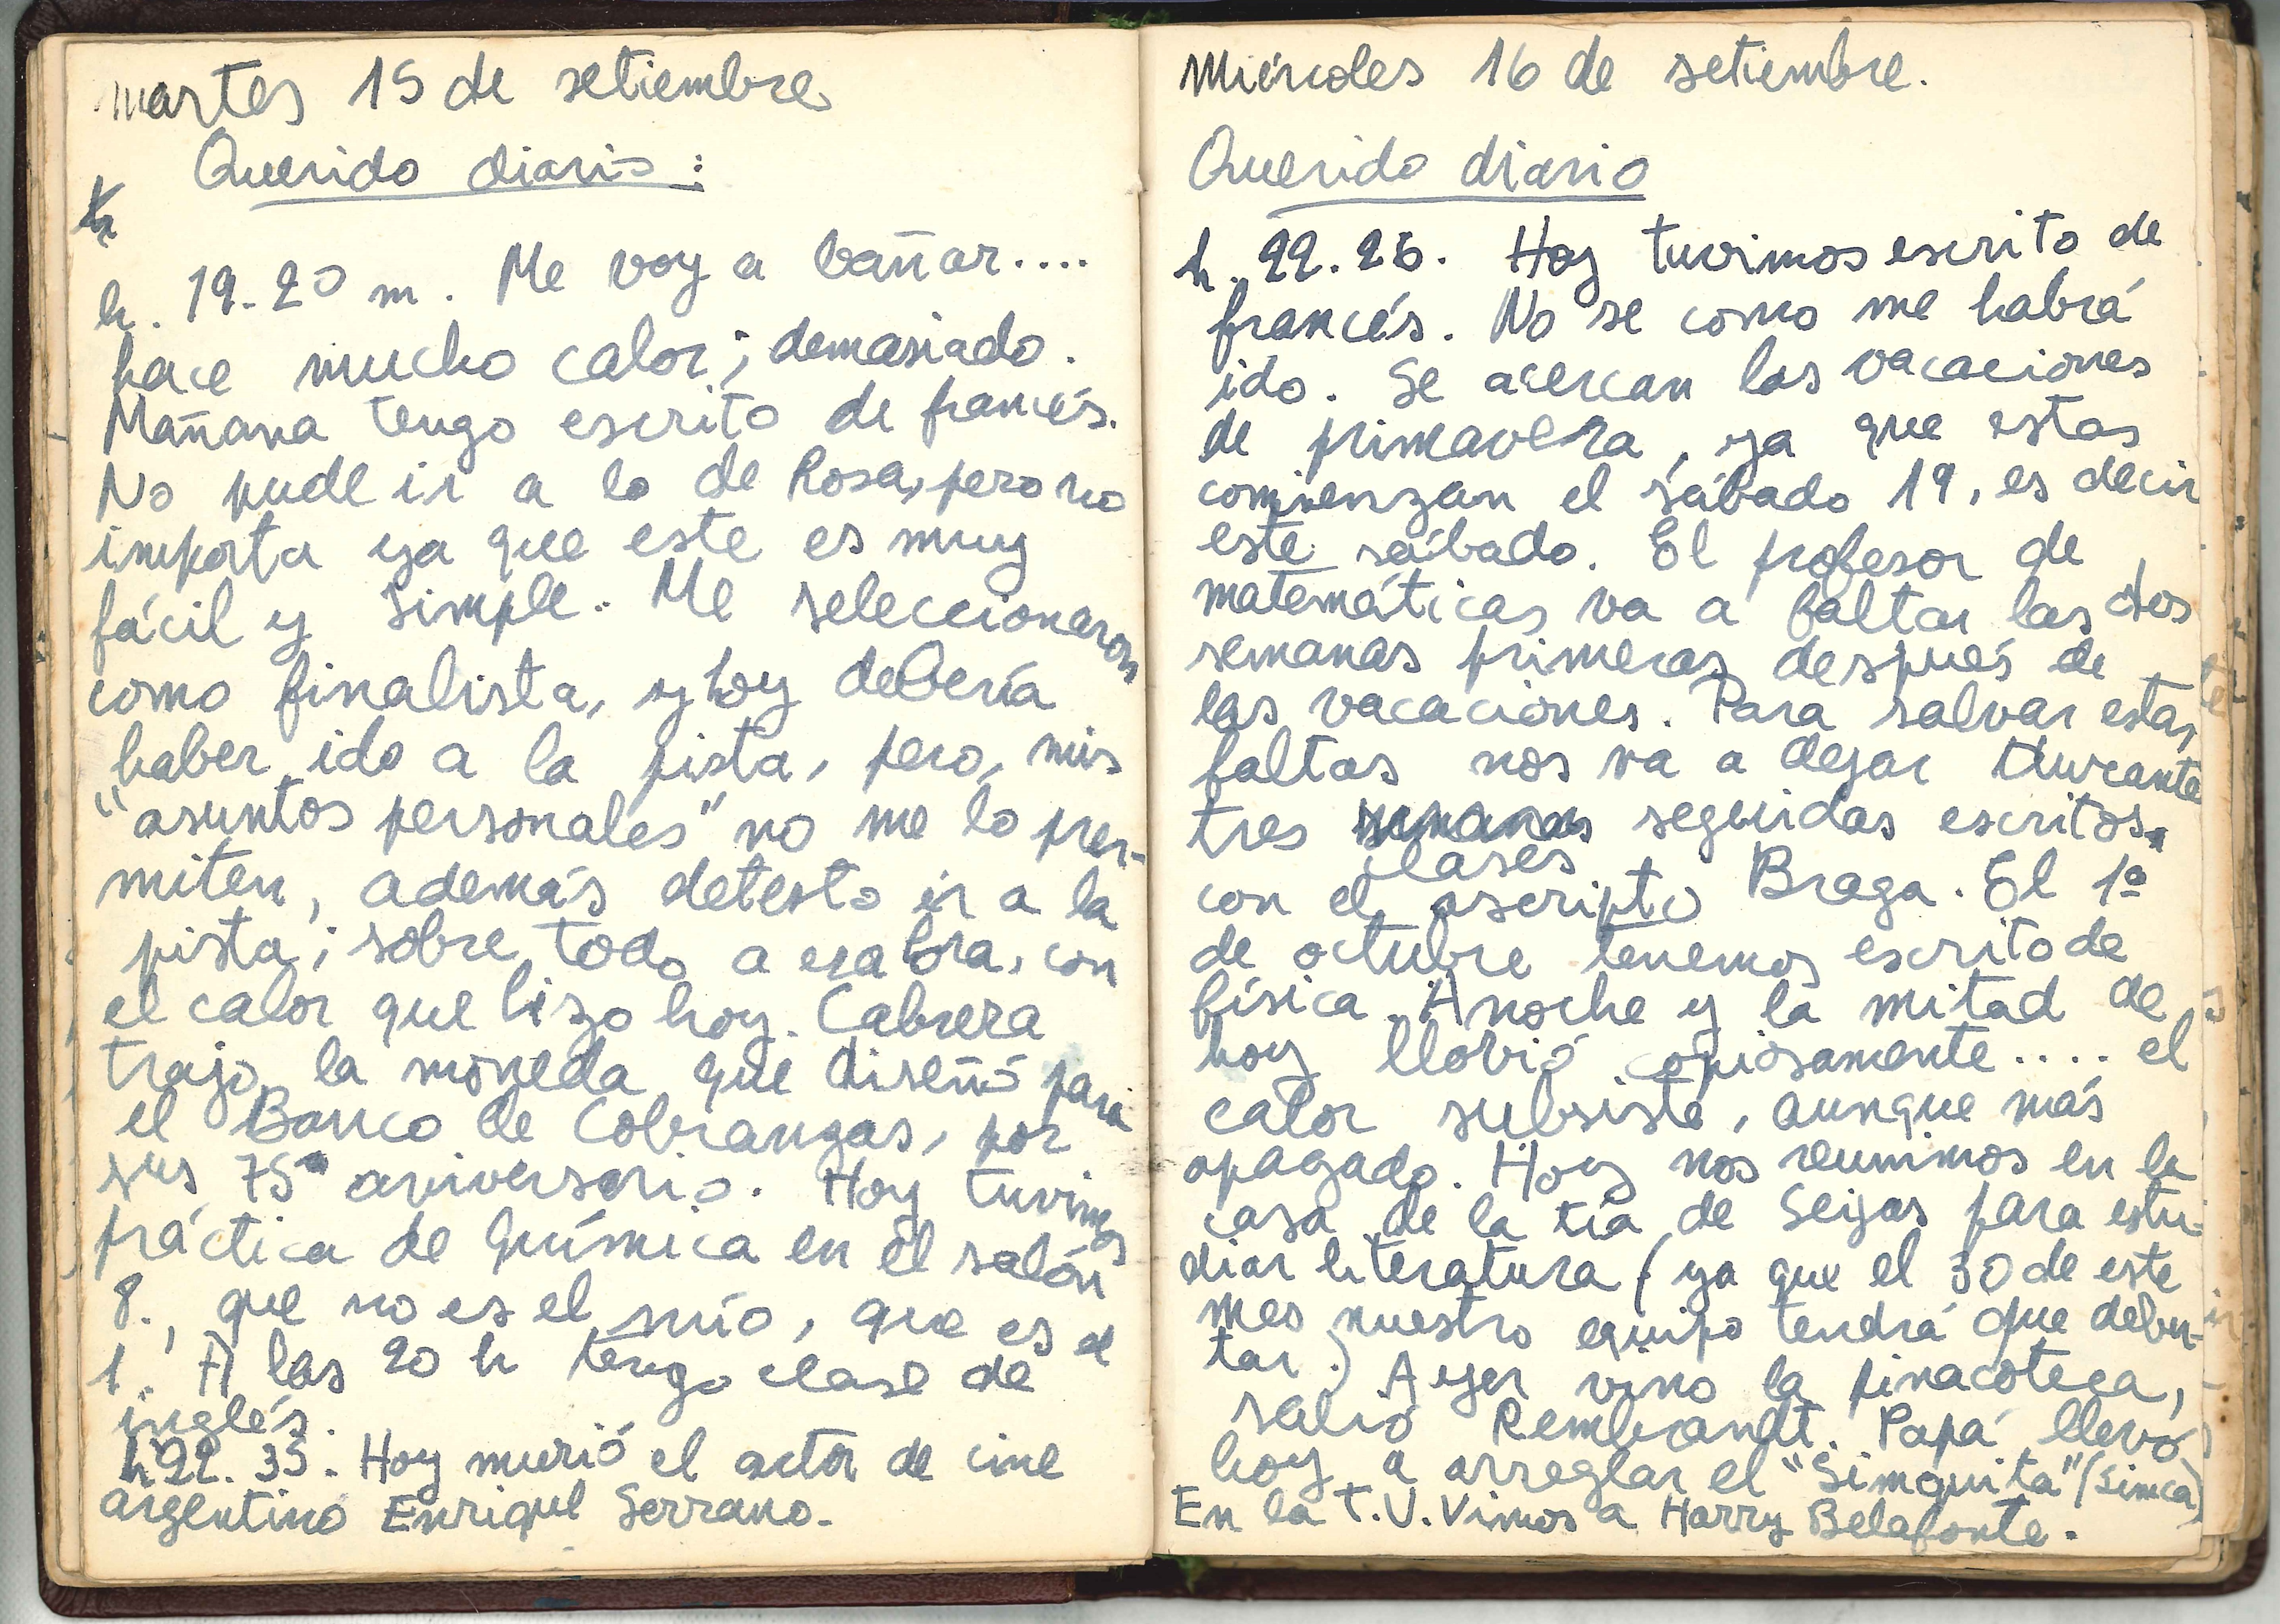 martes 15 de setiembre
Querido diario:
h. 19-20 m. Me voy a bañar....
hace mucho calor; demasiado.
Mañana tengo escrito de francés.
No pude ir a lo de Rosa, pero no
importa ya que este es muy
fácil y simple. Me seleccionaron
como finalista, y hoy debería
haber ido a la pista, pero, mis
"asuntos personales" no me lo per-
miten, además detesto ir a la
pista; sobre todo a esa hora, con
el calor que hizo hoy. Cabrera
trajo la moneda que diseñó para
el Banco de Cobranzas, por
sus 75º aniversario. Hoy tuvimos
práctica de química en el salón
8., que no es el mío, que es el
1. A las 20 h tengo clase de
inglés.
h 22. 35. Hoy murió el actor de cine
argentino Enrique Serrano.
Miércoles 16 de setiembre.
Querido diario
h. 22.26. Hoy tuvimos escrito de
francés. No se como me habrá
ido. Se acercan las vacaciones
de primavera, ya que estas
comienzan el sábado 19, es decir
este sábado. El profesor de
matemáticas va a faltar las dos
semanas primeras después de
las vacaciones. Para salvar estas
faltas nos va a dejar durante
tres semanas seguidas escritos.
clases
con el ascripto Braga. El 1º
de octubre tenemos escrito de
física. Anoche y la mitad de
hoy llovió copiosamente.... el
calor subsiste, aunque más
apagado. Hoy nos reunimos en la
casa de la tía de Seijas para estu-
diar literatura (ya que el 30 de este
mes nuestro equipo tendrá que debu-
tar.) Ayer vino la pinacoteca,
salió Rembrandt. Papá llevó
hoy a arreglar el "Simquita" (Simca)
En la T.V. Vimos a Harry Belafonte.